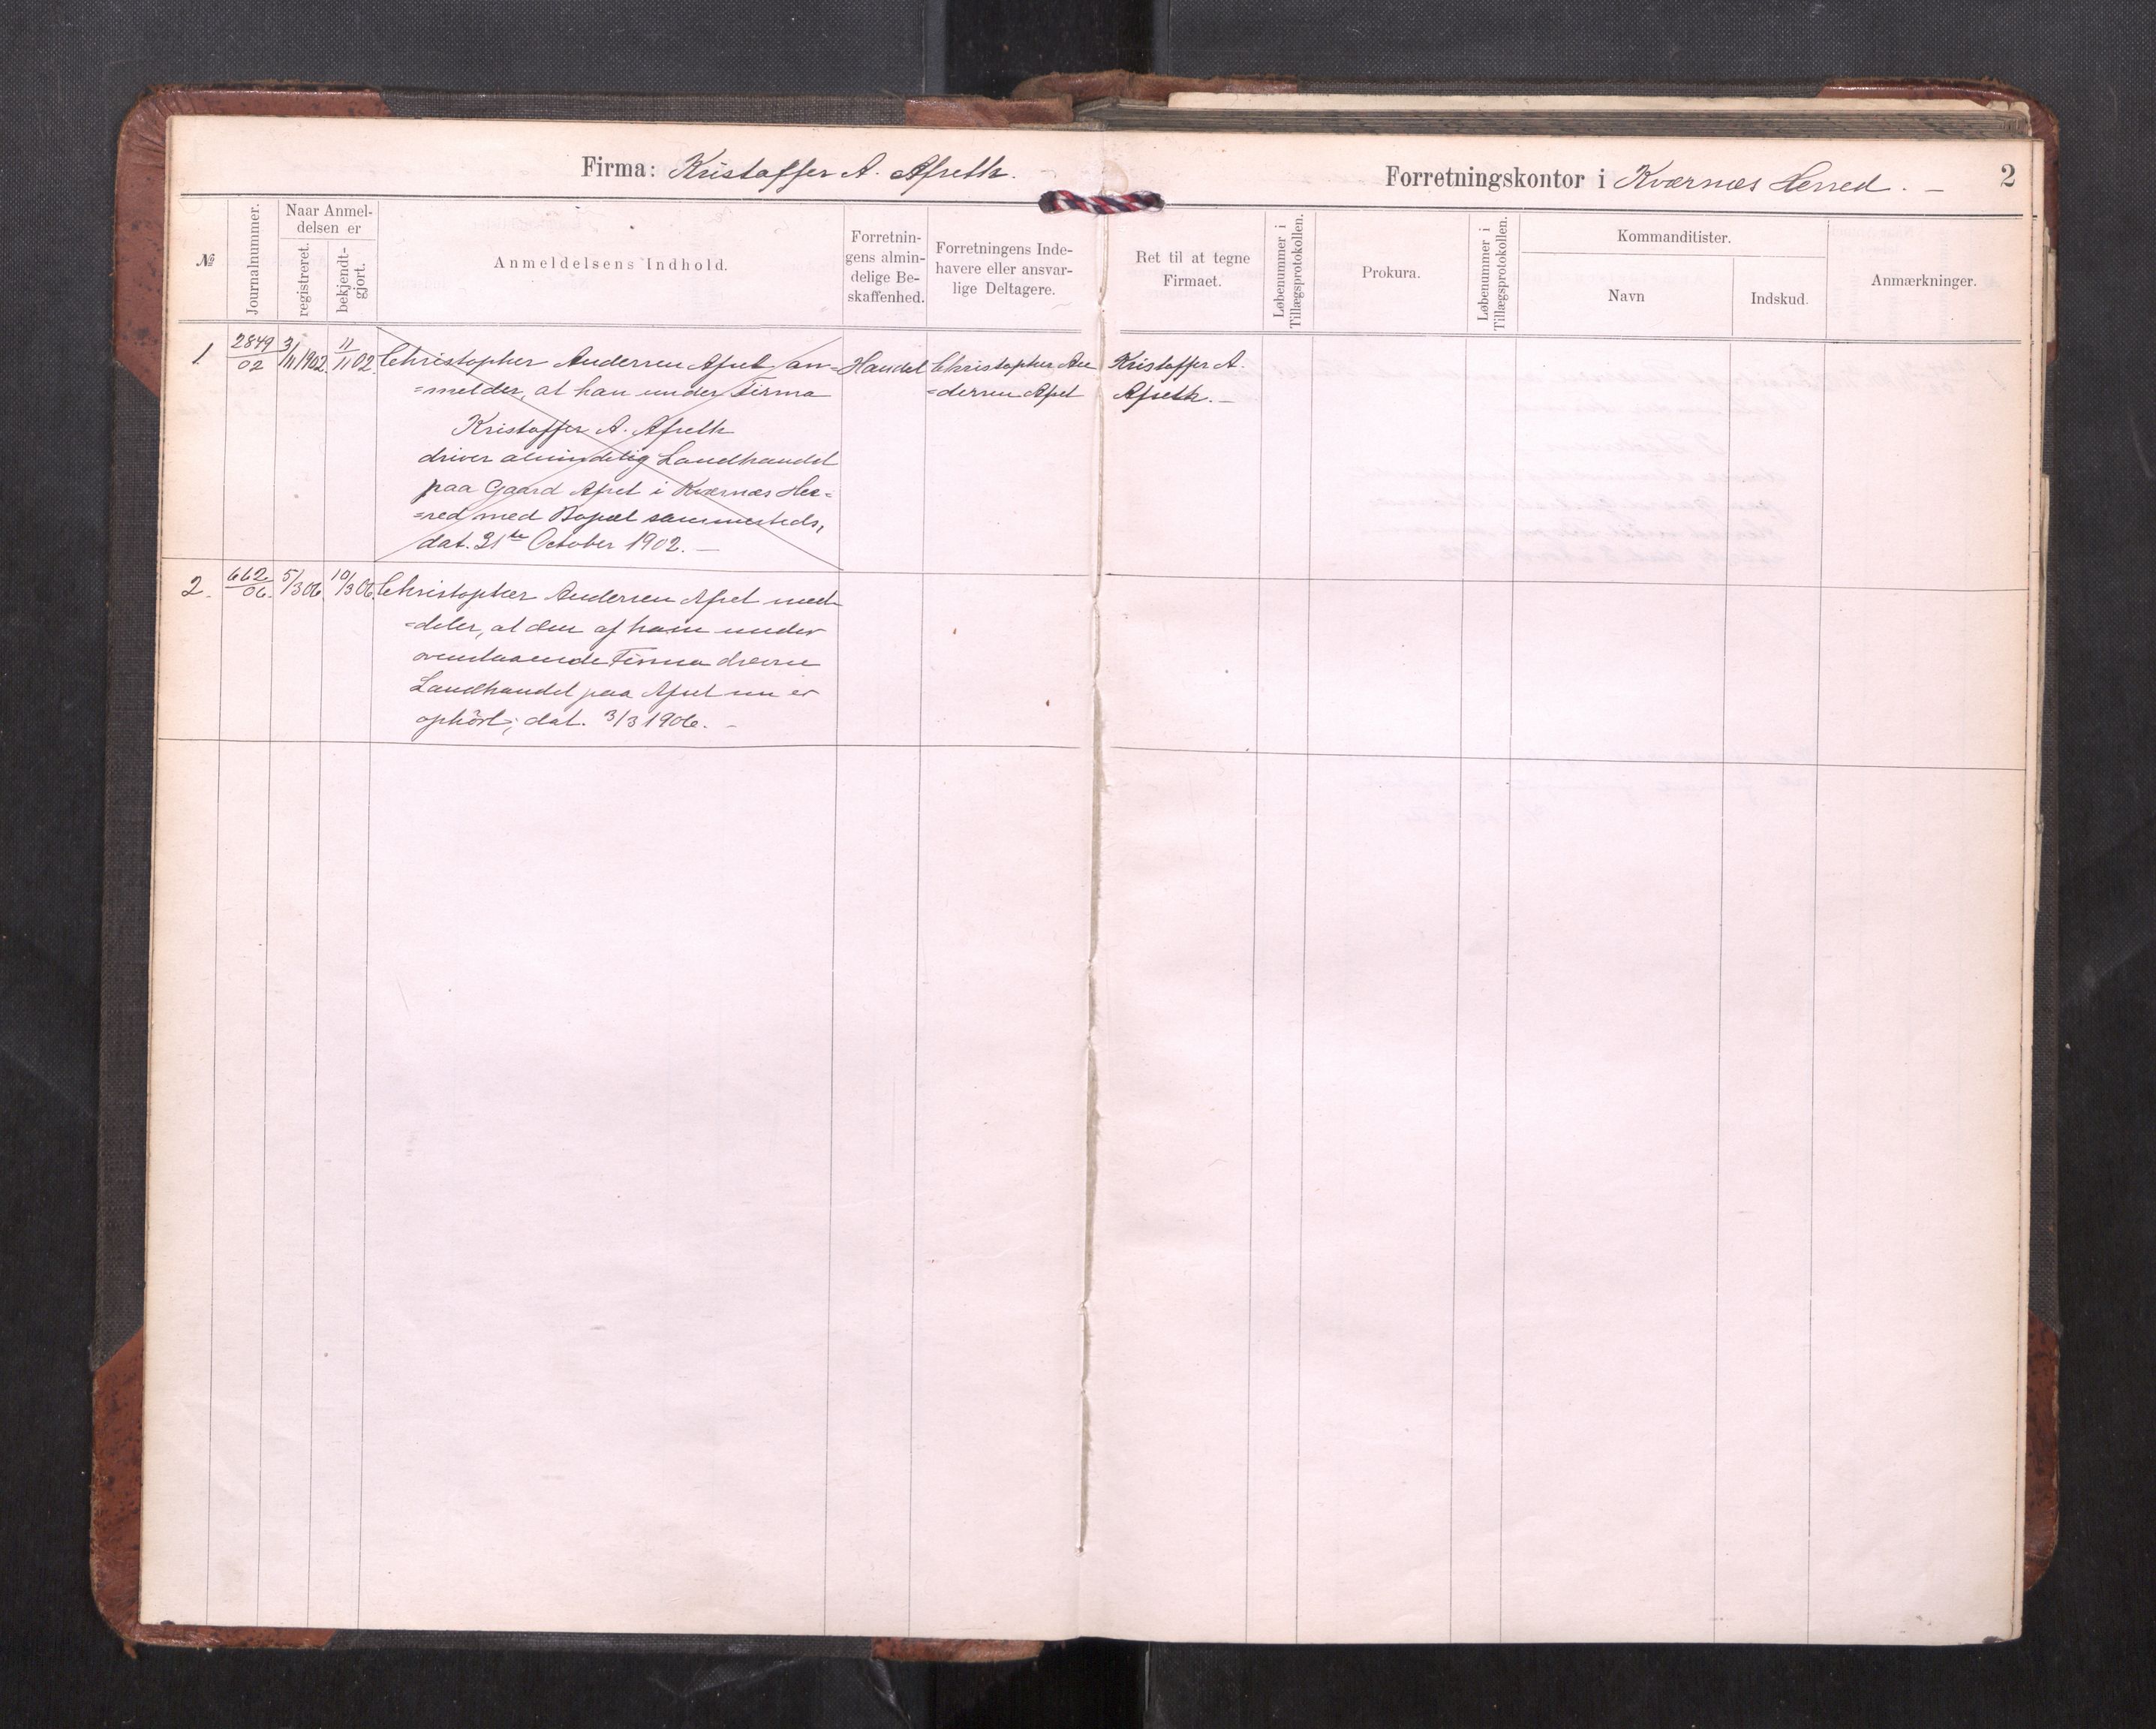 Firma: Kristoffer A. Afseth.
Forretningskontor i Kværnæs Herred. –
2
№
Journalnummer.
Naar Anmel-
delsen er
registreret.
bekjendt-
gjort.
Anmeldelsens Indhold.
Forretnin-
gens almin-
delige Be-
skaffenhed.
Forretningens Inde-
havere eller ansvar-
lige Deltagere.
Ret til at tegne
Firmaet.
Løbenummer i
Tillægsprotokollen.
Prokura.
Løbenummer i
Tillægsprotokollen.
Kommanditister.
Navn
Indskud.
Anmærkninger.
1. 2849/02 3/11 1902. 11/11 02.
Christopher Andersen Afset an-
=melder, at han under Firma
Kristoffer A. Afseth
driver almindelig Landhandel
paa Gaard Afset i Kværnæs Her=
=red med Bopæl sammesteds,
dat. 31te October 1902. –
Handel
Christopher An
=dersen Afset
Kristoffer A.
Afseth. –
2. 662/06. 5/3 06. 10/3 06.
Christopher Andersen Afset med
=deler, at den af ham under
ovenstaaende Firma drevne
Landhandel paa Afset nu er
ophört; dat. 3/3 1906. –